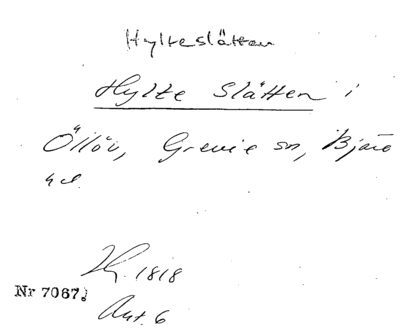 Hylteslätten
Hylte Slätten i
Öllöv, Grevie sn, Bjäre
hd.
1818
Nr 7067.
Akt. 6